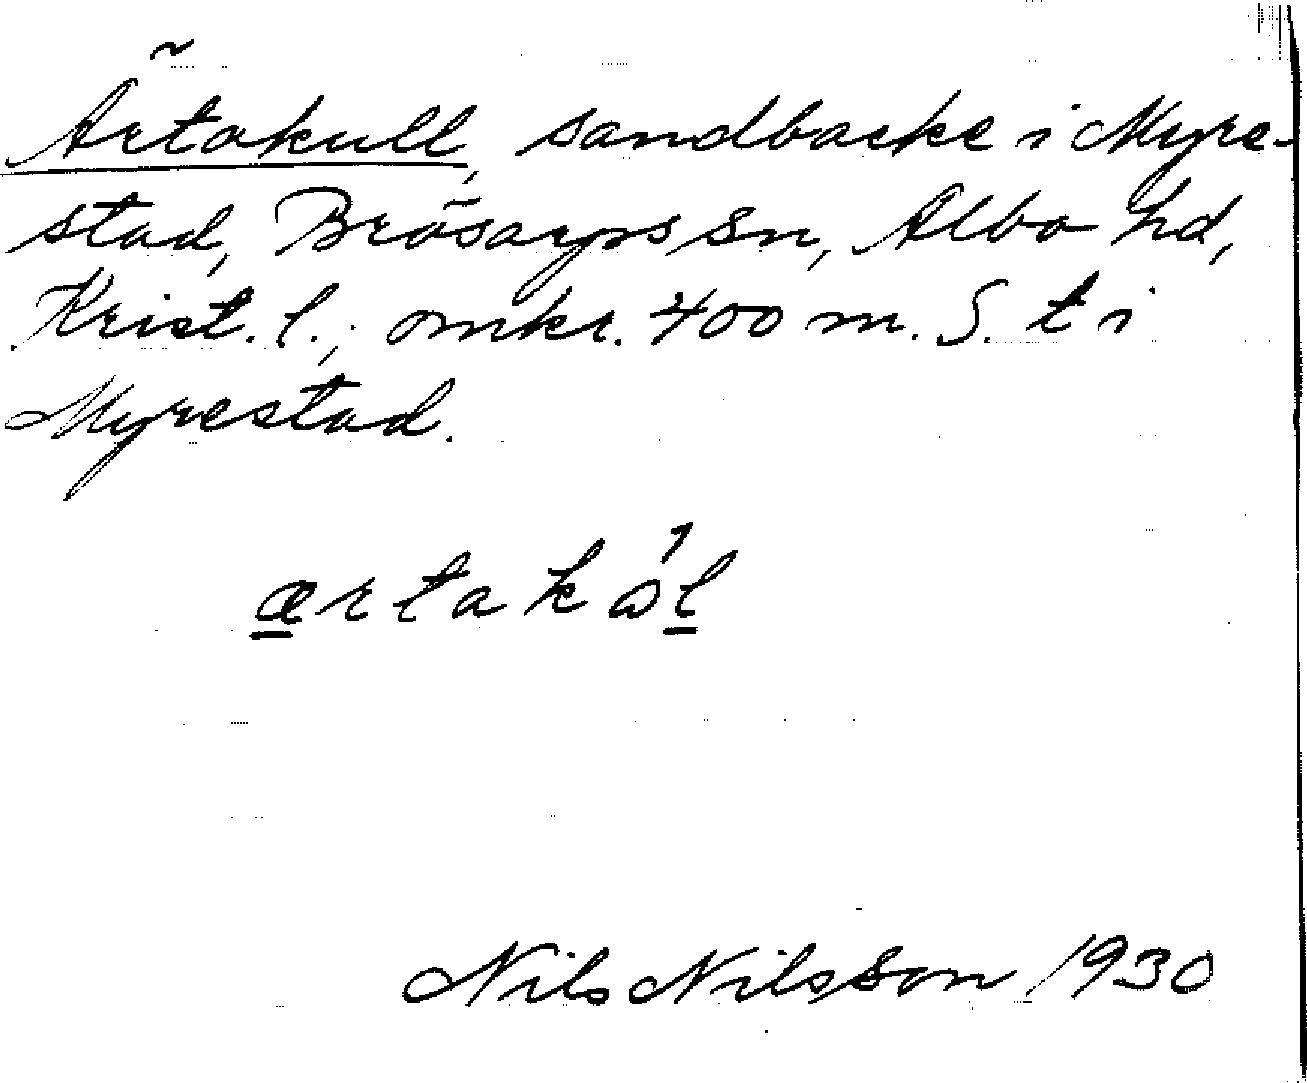 Ärtakull, sandbacke i Myre-
stad, Brösarps sn, Albo hd,
Krist. l.; omkr. 400 m. S. t i
Myrestad.
ærtakωʹl
Nils Nilsson 1930